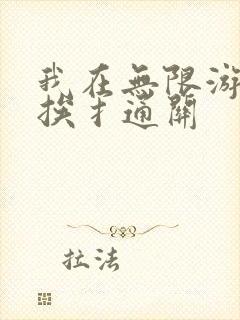 我在無限游
挨才通關
拉法